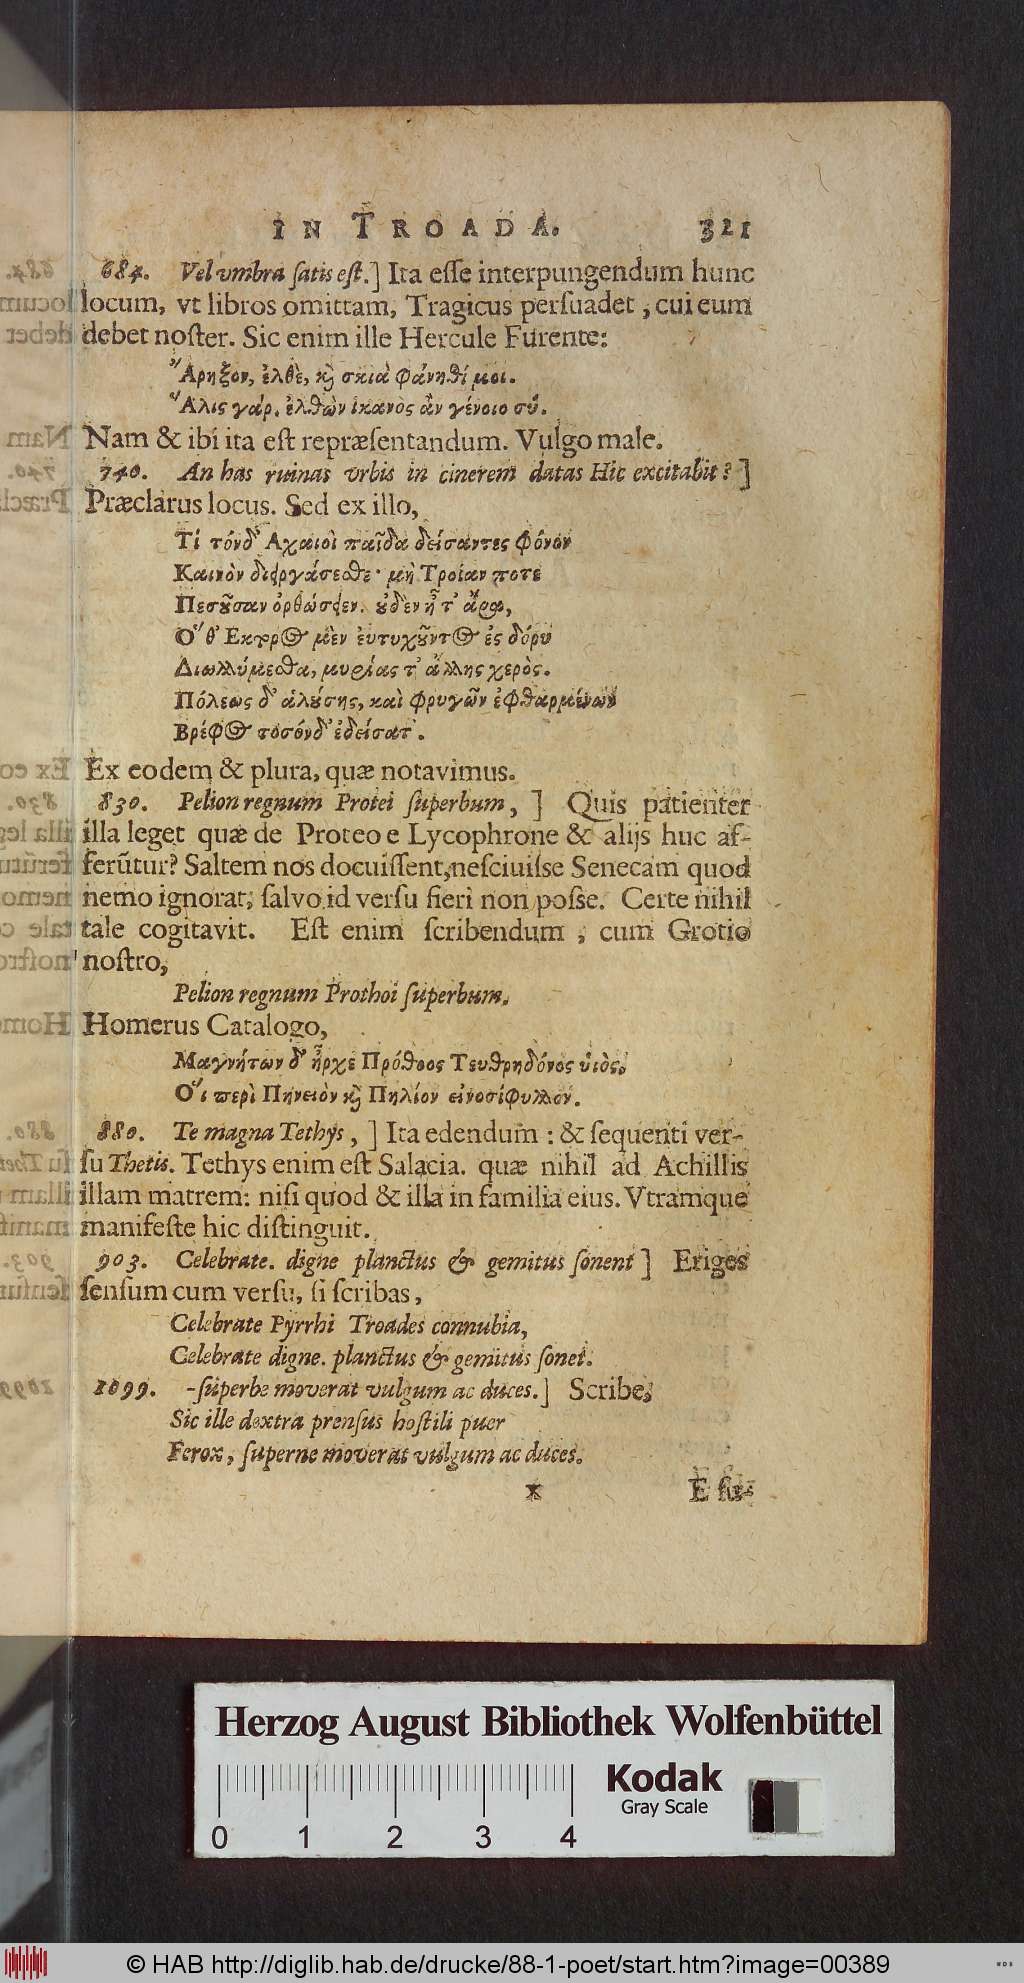 IN TROADA. 321
684. Vel vmbra ſatis eſt.] Ita eſſe interpungendum hunc
locum, vt libros omittam, Tragicus perſuadet, cui eum
debet noſter. Sic enim ille Hercule Furente:
Ἄρηξον, ἐλθὲ, καὶ σκιὰ φάνηθί μοι.
Ἅλις γάρ. ἐλθὼν ἱκανὸς ἂν γένοιο σύ.
Nam & ibi ita eſt repræſentandum. Vulgo male.
740. An has ruinas vrbis in cinerem datas Hic excitabit?]
Præclarus locus. Sed ex illo,
Τί τόνδ' Ἀχαιοὶ παῖδα δείσαντες φόνον
Καινὸν διειργάσεσθε· μὴ Τροίαν ποτε
Πεσοῦσαν ὀρθώσειεν. οὐδὲν ἦτ' ἄρα,
Ὅθ' Εκτορος μὲν εὐτυχοῦντος ἐς δόρυ
Διωλλύμεσθα, μυρίας τ' ἄλλης χερὸς.
Πόλεως δ' ἁλούσης, καὶ Φρυγῶν ἐφθαρμένων
Βρέφος τοσόνδ' ἐδείσατ'.
Ex eodem & plura, quæ notavimus.
830. Pelion regnum Protei ſuperbum,] Quis patienter
illa leget quæ de Proteo e Lycophrone & alijs huc af-
ferūtur? Saltem nos docuiſſent, neſciuiſse Senecam quod
nemo ignorat; ſalvo id verſu fieri non poſse. Certe nihil
tale cogitavit. Eſt enim ſcribendum, cum Grotio
noſtro,
Pelion regnum Prothoi ſuperbum.
Homerus Catalogo,
Μαγνήτων δ' ἦρχε Πρόθοος Τευθρηδόνος υἱὸς.
Οἵ περὶ Πηνειὸν καὶ Πηλίον εἰνοσίφυλλον.
880. Te magna Tethys,] Ita edendum: & ſequenti ver-
ſu Thetis. Tethys enim eſt Salacia. quæ nihil ad Achillis
illam matrem: niſi quod & illa in familia eius. Vtramque
manifeſte hic diſtinguit.
903. Celebrate. digne planctus & gemitus ſonent] Eriges
ſenſum cum verſu, ſi ſcribas,
Celebrate Pyrrhi Troades connubia,
Celebrate digne. planctus & gemitus ſonet.
1099. -ſuperbe moverat vulgum ac duces.] Scribe,
Sic ille dextra prenſus hoſtili puer
Ferox, ſuperne moverat vulgum ac duces.
x E ſu-
Herzog August Bibliothek Wolfenbüttel
Kodak
Gray Scale
0 1 2 3 4
© HAB http://diglib.hab.de/drucke/88-1-poet/start.htm?image=00389